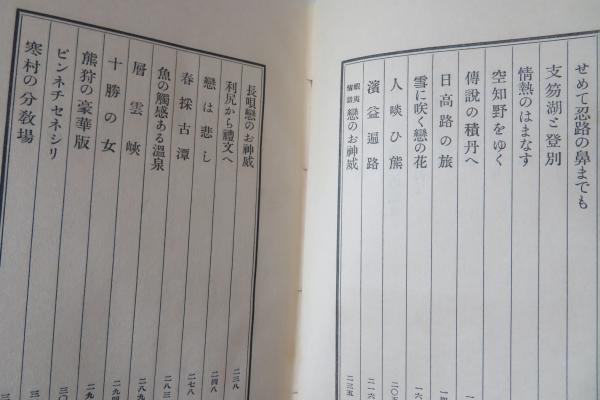 せめて忍路の鼻までも
支笏湖と登別
情熱のはまなす
空知野をゆく
傳說の積丹へ
雪に咲く戀の花
日高路の旅
人啖ひ熊
濱益遍路
蝦夷情話 戀のお神威 二三五
長唄戀のお神威 二三八
利尻から禮文へ 二四八
戀は悲し 二七八
春採古潭 二八三
魚の觸感ある溫泉
層雲峽
十勝の女
熊狩の豪華版
ピンネチセネシリ
寒村の分敎場